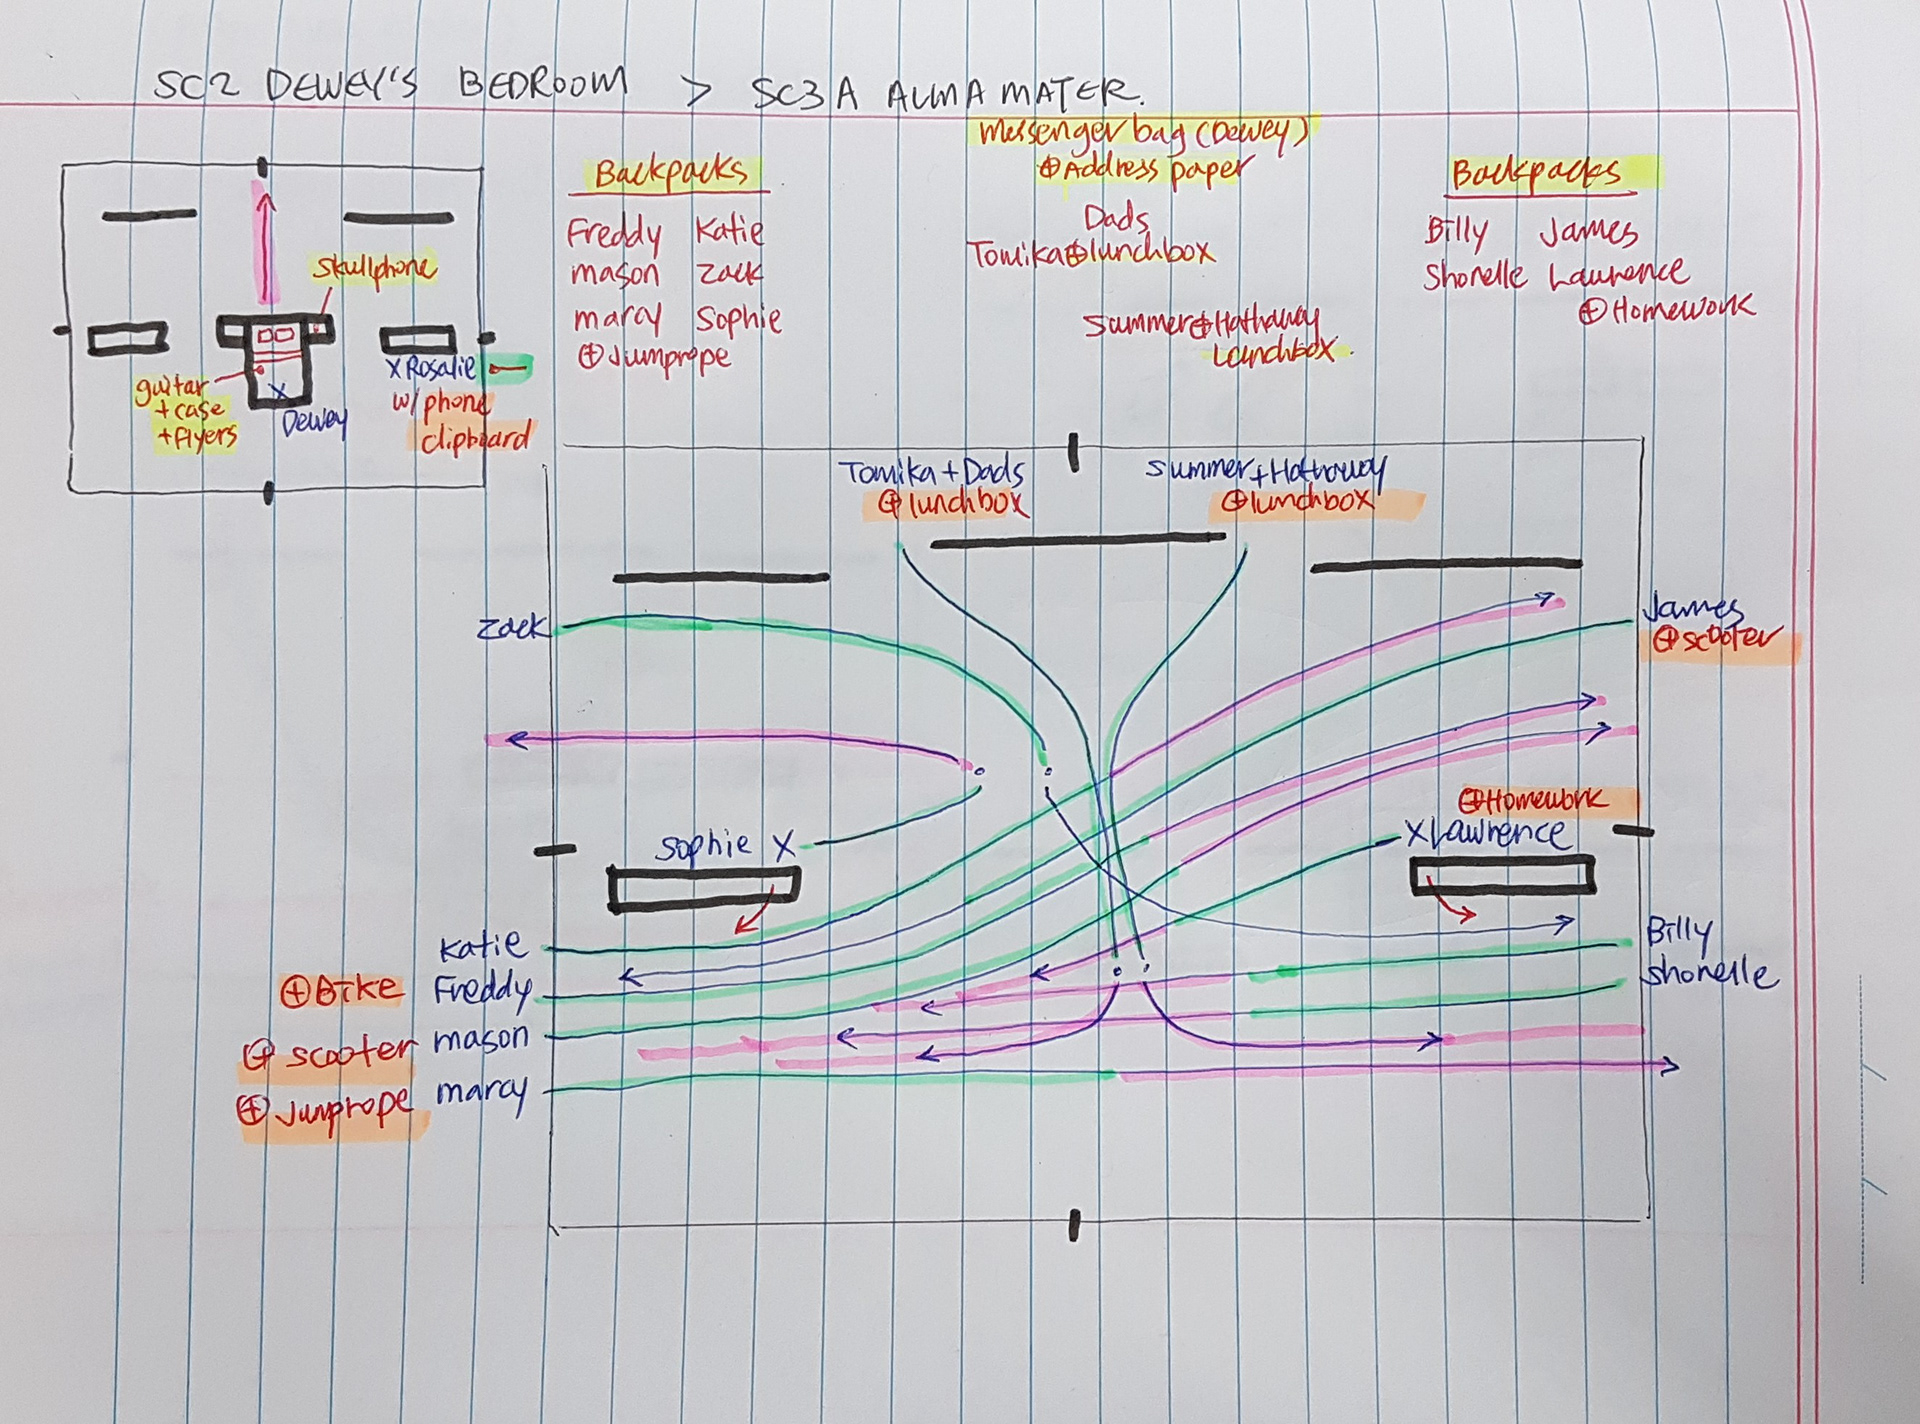 SC2 DEWEY'S BEDROOM > SC3A ALMA MATER.
Messenger bag (Dewey)
⊕Address paper
Dads
Tomika⊕lunchbox
Summer⊕Hathaway
Lunchbox.
Backpacks
Freddy Katie
mason Zack
marcy Sophie
⊕Jumprope
Backpacks
Billy James
Shonelle Lawrence
⊕Homework
skullphone
guitar
+case
+flyers
X
Dewey
X Rosalie
w/phone
clipboard
Tomika+Dads
⊕lunchbox
Summer+Hathaway
⊕lunchbox
Zack
James
⊕scooter
Sophie X
⊕Homework
X Lawrence
Katie
⊕Bike Freddy
⊕ scooter mason
⊕ Jumprope marcy
Billy
Shonelle